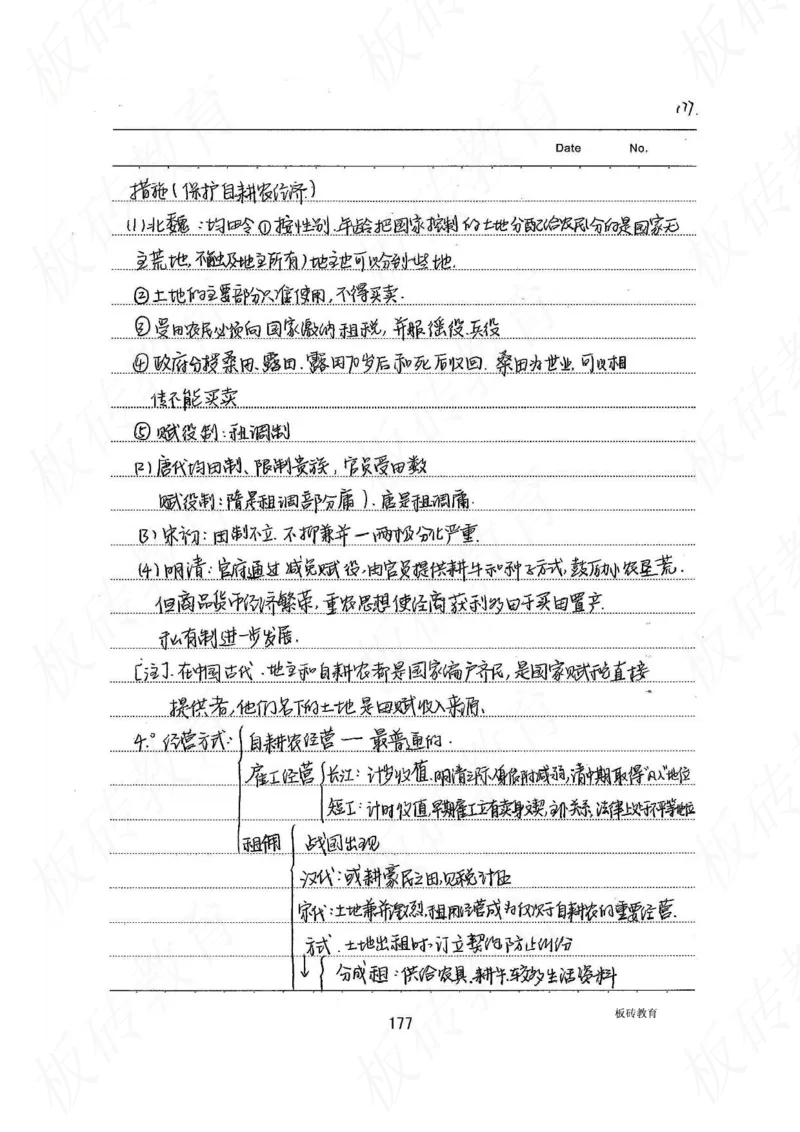 177.
Date No.
措施(保护自耕农经济)
(1)北魏:均田令①按性别、年龄把国家控制的土地分配给农民(分的是国家无
主荒地,不触及地主所有)地主也可以分到些地.
②土地的主要部分只准使用,不得买卖.
③受田农民必须向国家缴纳租税,并服徭役、兵役
④政府分授桑田、露田.露田70岁后和死后收回.桑田为世业,可以相
传不能买卖
⑤赋役制:租调制
(2)唐代均田制、限制贵族,官员受田数
赋役制:隋是租调部分庸).唐是租调庸.
(3)宋初:田制不立.不抑兼并一两极分化严重.
(4)明清:官府通过减免赋役,由官员提供耕牛和种子方式,鼓励小农垦荒.
但商品货币经济繁荣,重农思想使经商获利多由于买田置产.
私有制进一步发展.
[注].在中国古代.地主和自耕农都是国家编户齐民,是国家赋税直接
提供者,他们名下的土地是田赋收入来源.
4.°经营方式: 自耕农经营一最普通的.
雇工经营 长工:计岁收值.明清之际人身依附减弱,清中期取得"凡人"地位
短工:计时收值,早期雇工立有卖身文契,主仆关系,法律上处于不平等地位
租佃 战国出现
汉代:或耕豪民之田,见税什伍
宋代:土地兼并激烈.租佃经营成为仅次于自耕农的重要经营.
方式.土地出租时订立契约防止纠纷
↓ 分成租:供给农具、耕牛、较多生活资料
177
板砖教育